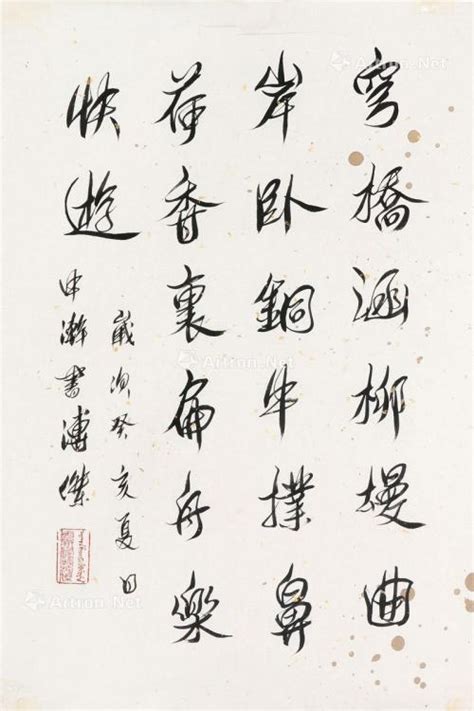 穹橋涵柳堤曲
岸卧銅牛撲鼻
荷香裏扁舟樂
快遊
歲次癸亥夏日
中澣書溥傑
Artron.Net
Artron.Net
Artron.Net
Artron.Net